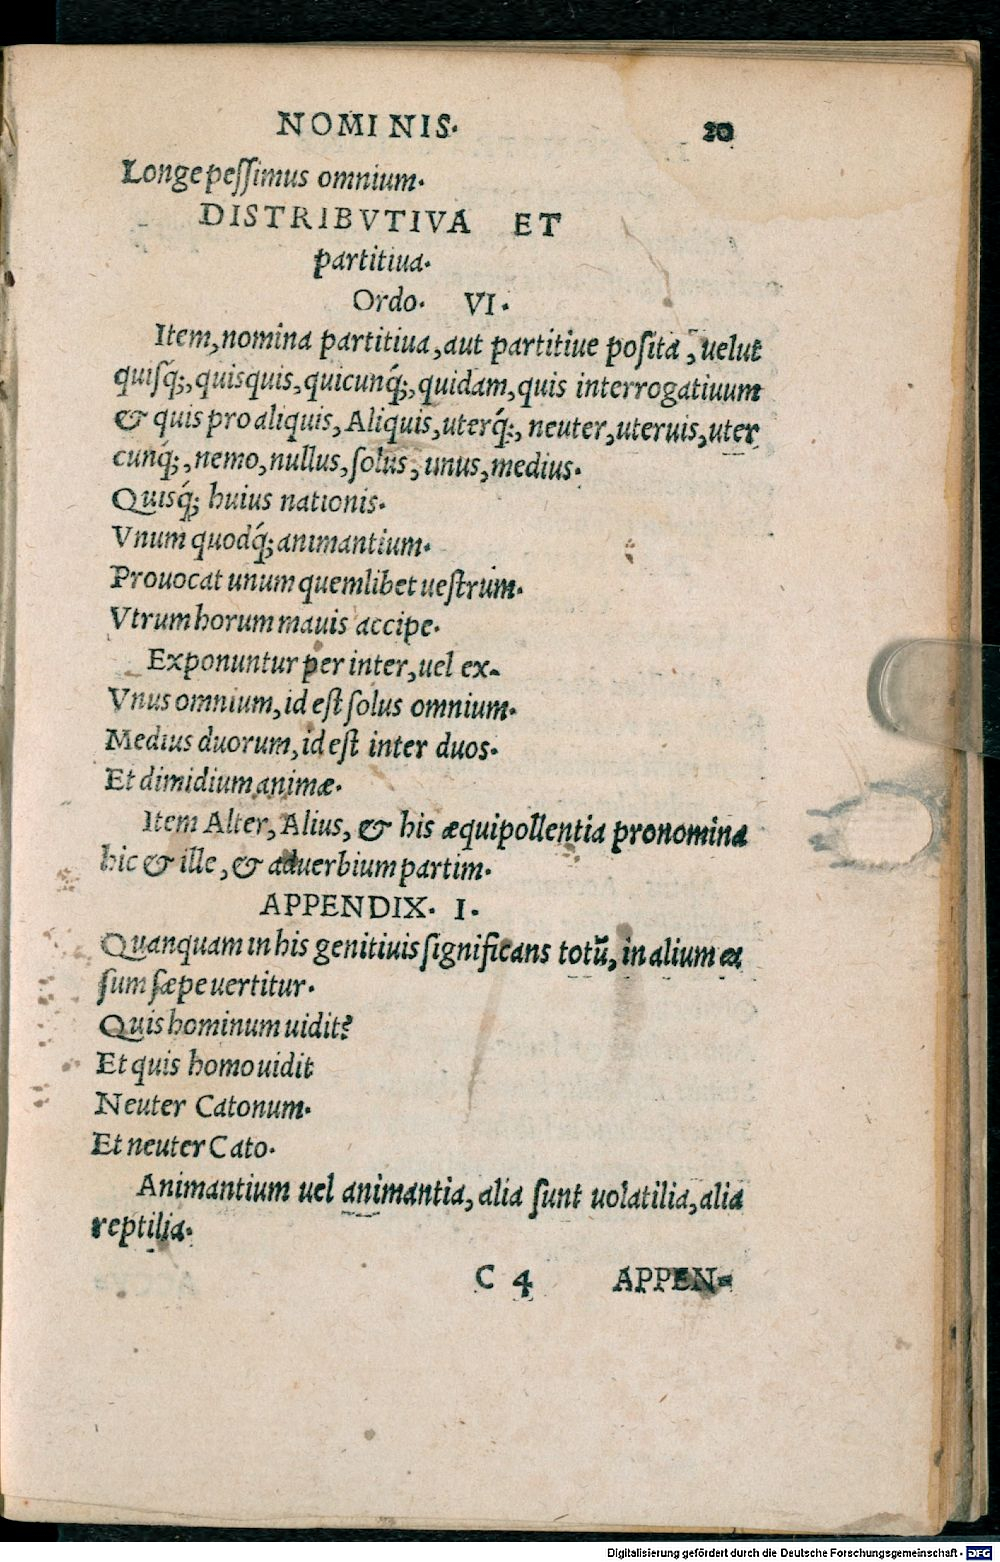 NOMINIS. 20
Longe peſſimus omnium.
DISTRIBVTIVA ET
partitiua.
Ordo. VI.
Item, nomina partitiua, aut partitiue poſita, uelut
quiſq́;, quisquis, quicunq́;, quidam, quis interrogatiuum
& quis pro aliquis, Aliquis, uterq́;, neuter, uteruis, uter
cunq́;, nemo, nullus, ſolus, unus, medius.
Quisq́; huius nationis.
Vnum quodq́; animantium.
Prouocat unum quemlibet ueſtrum.
Vtrum horum mauis accipe.
Exponuntur per inter, uel ex.
Vnus omnium, id eſt ſolus omnium.
Medius duorum, id eſt inter duos.
Et dimidium animæ.
Item Alter, Alius, & his æquipollentia pronomina
hic & ille, & aduerbium partim.
APPENDIX. I.
Quanquam in his genitiuis ſignificans totũ, in alium ca
ſum ſæpe uertitur.
Quis hominum uidit?
Et quis homo uidit
Neuter Catonum.
Et neuter Cato.
Animantium uel animantia, alia ſunt uolatilia, alia
reptilia.
C 4 APPEN-
Digitalisierung gefördert durch die Deutsche Forschungsgemeinschaft - DFG